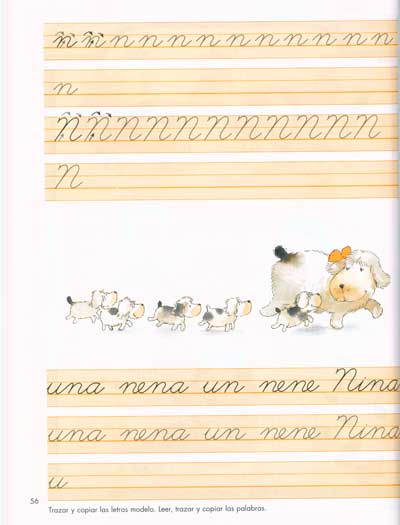 n n n n n n n n n n n n
n
N N N N N N N N N N N
N
una nena un nene Nina
una nena un nene Nina
u
56
Trazar y copiar las letras modelo. Leer, trazar y copiar las palabras.